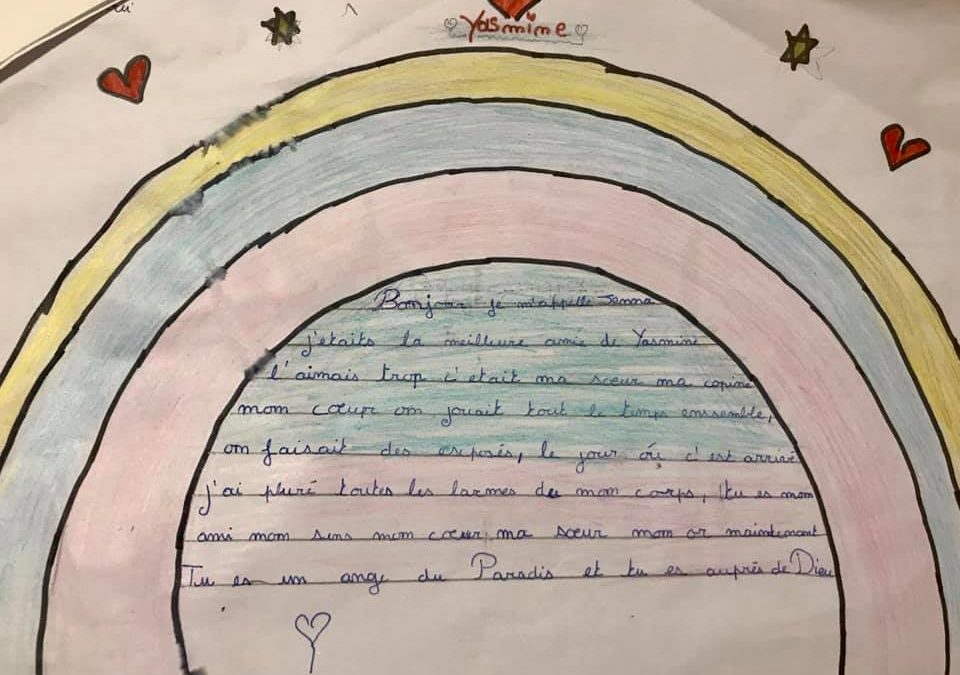 Yasmine
Bonjour je m'appelle Jenna
j'etaits la meilleure amie de Yasmine
l'aimais trop c'était ma sœur ma copine
mom cœur om jouait tout le temps enssemble,
om faisait des exposés, le jour où c'est arrivé
j'ai pluré toutes les larmes de mom corps, tu es mom
ami mom sens mom cœur, ma sœur mom or maintemant
Tu es um ange du Paradis et tu es auprés de Dieu